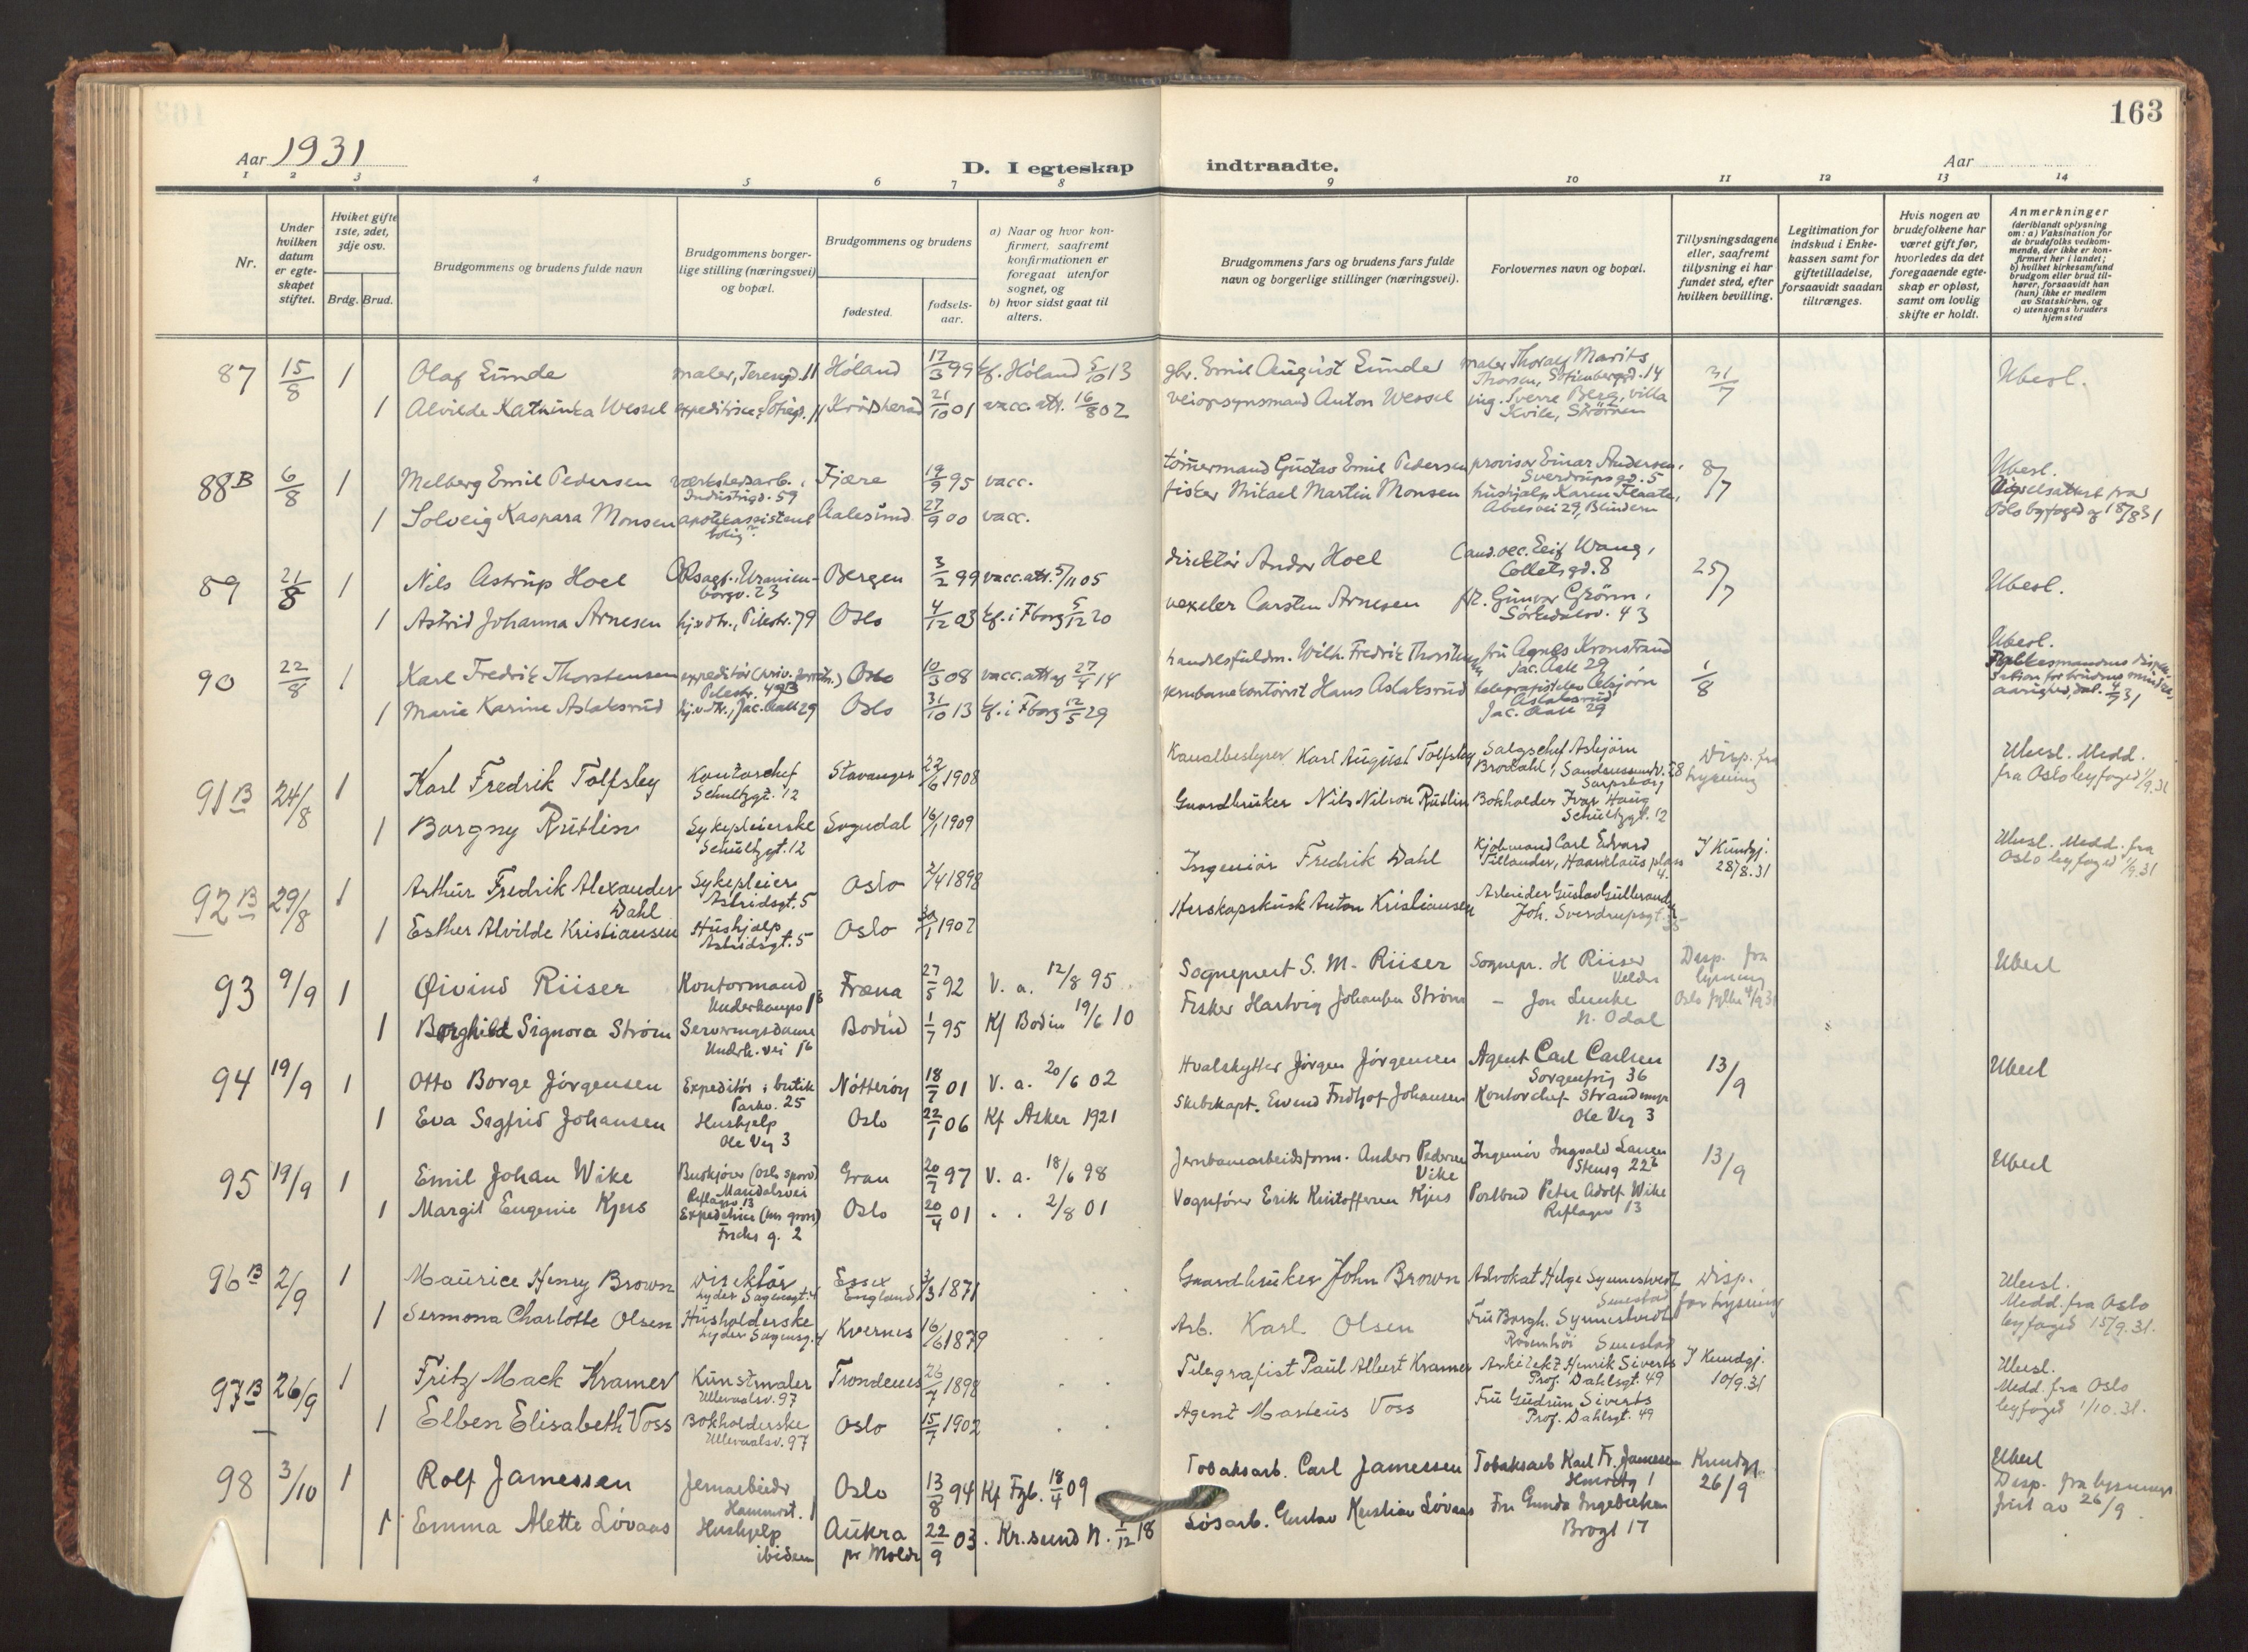 163
Aar 1931
D. I egteskap indtraadte.
Aar
1 2 3 4 5 6 7 8 9 10 11 12 13 14
Nr.
Under hvilken datum er egteskapet stiftet.
Hviket gifte 1ste, 2det, 3dje osv.
Brdg. Brud.
Brudgommens og brudens fulde navn
Brudgommens borgerlige stilling (næringsvei) og bopæl.
Brudgommens og brudens
fødested.
fødselsaar.
a) Naar og hvor konfirmert, saafremt konfirmationen er foregaat utenfor sognet, og
b) hvor sidst gaat til alters.
Brudgommens fars og brudens fars fulde navn og borgerlige stillinger (næringsvei).
Forlovernes navn og bopæl.
Tillysningsdagene eller, saafremt tillysning ei har fundet sted, efter hvilken bevilling.
Legitimation for indskud i Enkekassen samt for giftetilladelse, forsaavidt saadan tiltrænges.
Hvis nogen av brudefolkene har været gift før, hvorledes da det foregaaende egteskap er opløst, samt om lovlig skifte er holdt.
Anmerkninger (deriblandt oplysning om: a) Vaksination for de brudefolks vedkommende, der ikke er konfirmert her i landet; b) hvilket kirkesamfund brudgom eller brud tilhører, forsaavidt han (hun) ikke er medlem av Statskirken, og c) utensogns bruders hjemsted
87 15/8 1 Olaf Lunde maler, 11 Høland 17/3 99 kf. Høland 5/10 13 gbr. Emil August Lunde maler Thoralf Marits Thorsen, 14 31/7 Ubesl.
1 Alvilde Katrinka Wessel 11 Krødsherad 21/10 01 vacc. att. 16/8 02 veiopsynsmand Anton Wessel ing. Sverre Berg, villa Kvile, Strømmen
88B 6/8 1 Melberg Emil Pedersen verkstedsarb., Industrigd. 59 Fjære 19/9 95 vacc. tømmermand Gustav Emil Pedersen provisor Einar Andersen, Sverdrupsgd. 5 8/7 Ubesl. Vigselsattest fra Oslo byfoged 18/8 31
1 Solveig Kaspara Monsen apotekassistent bolig? Aalesund 27/9 00 vacc. fisker Mikael Martin Monsen hushjelp Karen Flaate, Abelsvei 29, Blindern
89 21/8 1 Nils Astrup Hoel Uranienborgv. 23 Bergen 3/2 99 vacc. att. 5/11 05 direktør Andor Hoel Cand. oec. Leif Wang, Colletsgd. 8 25/7 Ubesl.
1 Astrid Johanna Arnesen hj.v.dtr., Pilestr. 79 Oslo 4/12 03 kf. i Fborg 5/12 20 vexeler Carsten Arnesen frk. Gunvor Grørn, Sørkedalsv. 43
90 22/8 1 Karl Fredrik Thorstensen expeditør Pilestr. 49B Oslo 10/3 08 vacc. att. 27/4 14 handelsfuldm. Wilh. Fredrik Thorstensen fru Agnes Kronstrand Jac. Aall 29 1/8 Ubesl. Fylkesmandens dispensation for brudens mindreaarighed, dat. 4/7 31
1 Marie Karine Aslaksrud hj.v.dtr., Jac. Aall 29 Oslo 31/10 13 kf. i Fborg 12/5 29 jernbanekontorist Hans Aslaksrud telegrafistelev Asbjørn Aslaksrud Jac. Aall 29
91B 24/8 1 Karl Fredrik Tolfsby Kontorchef Schultzgt. 12 Stavanger 22/6 1908 Kanalbestyrer Karl August Tolfsby Salgschef Asbjørn Brodahl, Sandesundv. 28 Sarpsborg Disp. fra lysning Ubesl. Medd. fra Oslo byfoged 1/9.31
1 Borgny Rutlin Sykepleierske Schultzgt. 12 Sogndal 16/1 1909 Gaardbruker Nils Nilson Rutlin Bokholder Ivar Haug Schultzgt. 12
92B 29/8 1 Arthur Fredrik Alexander Dahl Sykepleier Astridsgt. 5 Oslo 2/4 1898 Ingeniør Fredrik Dahl Kjøbmand Carl Edvard Tillander, Haarklous plass 4. I Kundgj. 28/8.31 Ubesl. Medd. fra Oslo byfoged 1/9.31
1 Esther Alvilde Kristiansen Hushjelp Astridsgt. 5 Oslo 30/1 1907 Herskapskusk Anton Kristiansen Arbeider Gustav Gulbrandsen Joh. Sverdrupsgt. 35
93 9/9 1 Øivind Riiser Kontormand Underhaugsv 13 Fræna 27/5 92 V. a. 12/8 95 Sogneprest S. M. Riiser Sognepr. H Riiser Disp. fra lysning Oslo fylke 4/9 31 Ubesl
1 Borghild Signora Strøm Serveringsdame Underh. vei 16 Bodin 1/7 95 Kf Bodin 19/6 10 Fisker Hartvig Johansen Strøm – Jon Lunke N. Odal
94 19/9 1 Otto Borge Jørgensen Expeditør i butik Parkv. 25 Nøtterøy 18/7 01 V. a. 20/6 02 Hvalskytter Jørgen Jørgensen Agent Carl Carlsen Sorgenfrig 36 13/9 Ubesl
1 Eva Sigfrid Johansen Hushjelp Ole Vig 3 Oslo 22/1 06 Kf Asker 1921 Skibskapt. Eivind Fridtjof Johansen Kontorchef Strandmyr Ole Vig 3
95 19/9 1 Emil Johan Wike Buskjører (Oslo sporv) Mandalsvei 13 Gran 20/7 97 V. a. 18/6 98 Jernbanearbeidsform. Anders Pedersen Vike Ingeniør Ingvald Larsen Stensg 22b 13/9 Ubesl
1 Margit Eugenie Kjus Expeditrice (en gros) g. 2 Oslo 20/4 01 . . 2/8 01 Vognfører Erik Kristoffersen Kjus Postbud Peter Adolf Wike 13
96B 2/9 1 Maurice Henry Brown Direktør Lyder Sagensgt. 4 Essex England 3/3 1871 Gaardbruker John Brown Advokat Helge Synnestvedt Disp. for lysning Ubesl. Medd. fra Oslo byfoged 15/9.31.
1 Sermona Charlotte Olsen Husholderske Lyder Sagensg. 4 Kvernes 16/6 1879 Arb. Karl Olsen Fru Borgh. Synnestvedt
97B 26/9 1 Fritz Mack Kramer Kunstmaler Ullevaalsv. 97 Trondenes 26/7 1898 Telegrafist Paul Albert Kramer Arkitekt Henrik Siverts Prof. Dahlsgt. 49 I Kundgj. 10/9.31 Ubesl. Medd. fra Oslo byfoged 1/10.31.
1 Elben Elisabeth Voss Bokholderske Ullevaalsv. 97 Oslo 15/7 1902 Agent Marteus Voss Fru Gudrun Siverts Prof. Dahlsgt. 49
98 3/10 1 Rolf Jamessen Jernarbeider Hammerst. 1 Oslo 13/8 94 Kf Fgb. 18/4 09 Tobaksarb. Carl Jamessen Tobaksarb Karl Fr. Jamessen 1 Kundgj. 26/9 Ubesl Disp. fra lysnings frist av 26/9
1 Emma Alette Løvaas Hushjelp ibidem Aukra pr Molde 22/9 03 . Kr.sund N. 1/12 18 Løsarb. Gustav Kristian Løvaas Fru Gunda Ingebretsen Brogt 17